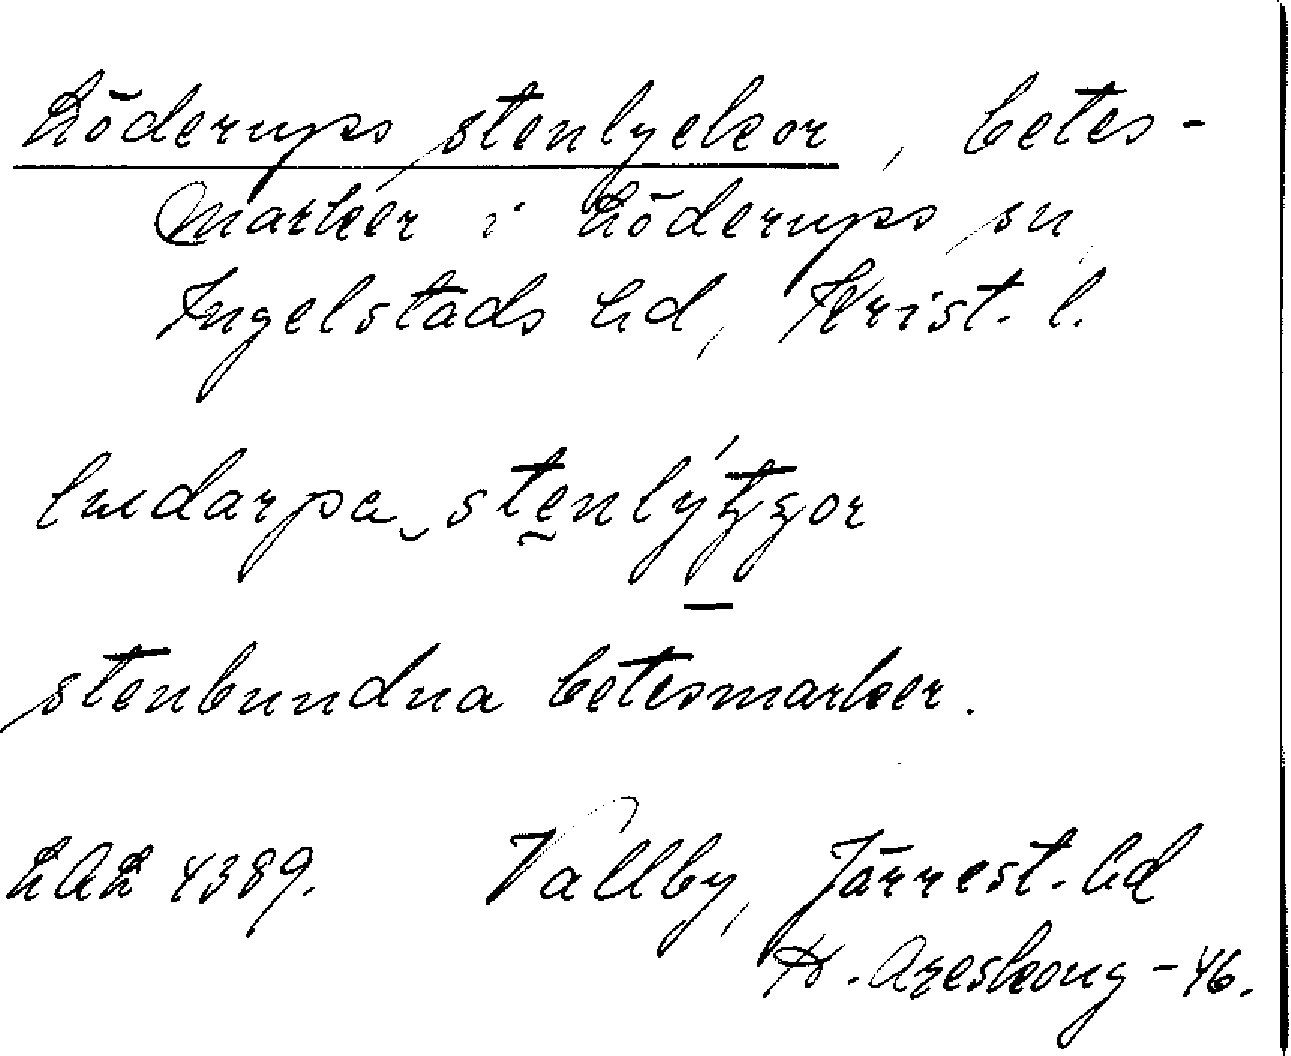 Löderups stenlyckor, betes-
marker i Löderups sn,
Ingelstads hd, Krist. l.
stenlýggor
stenbundna betesmarker.
LAL 4389. Vallby, Järrest. hd
H. Areskoug - 46.